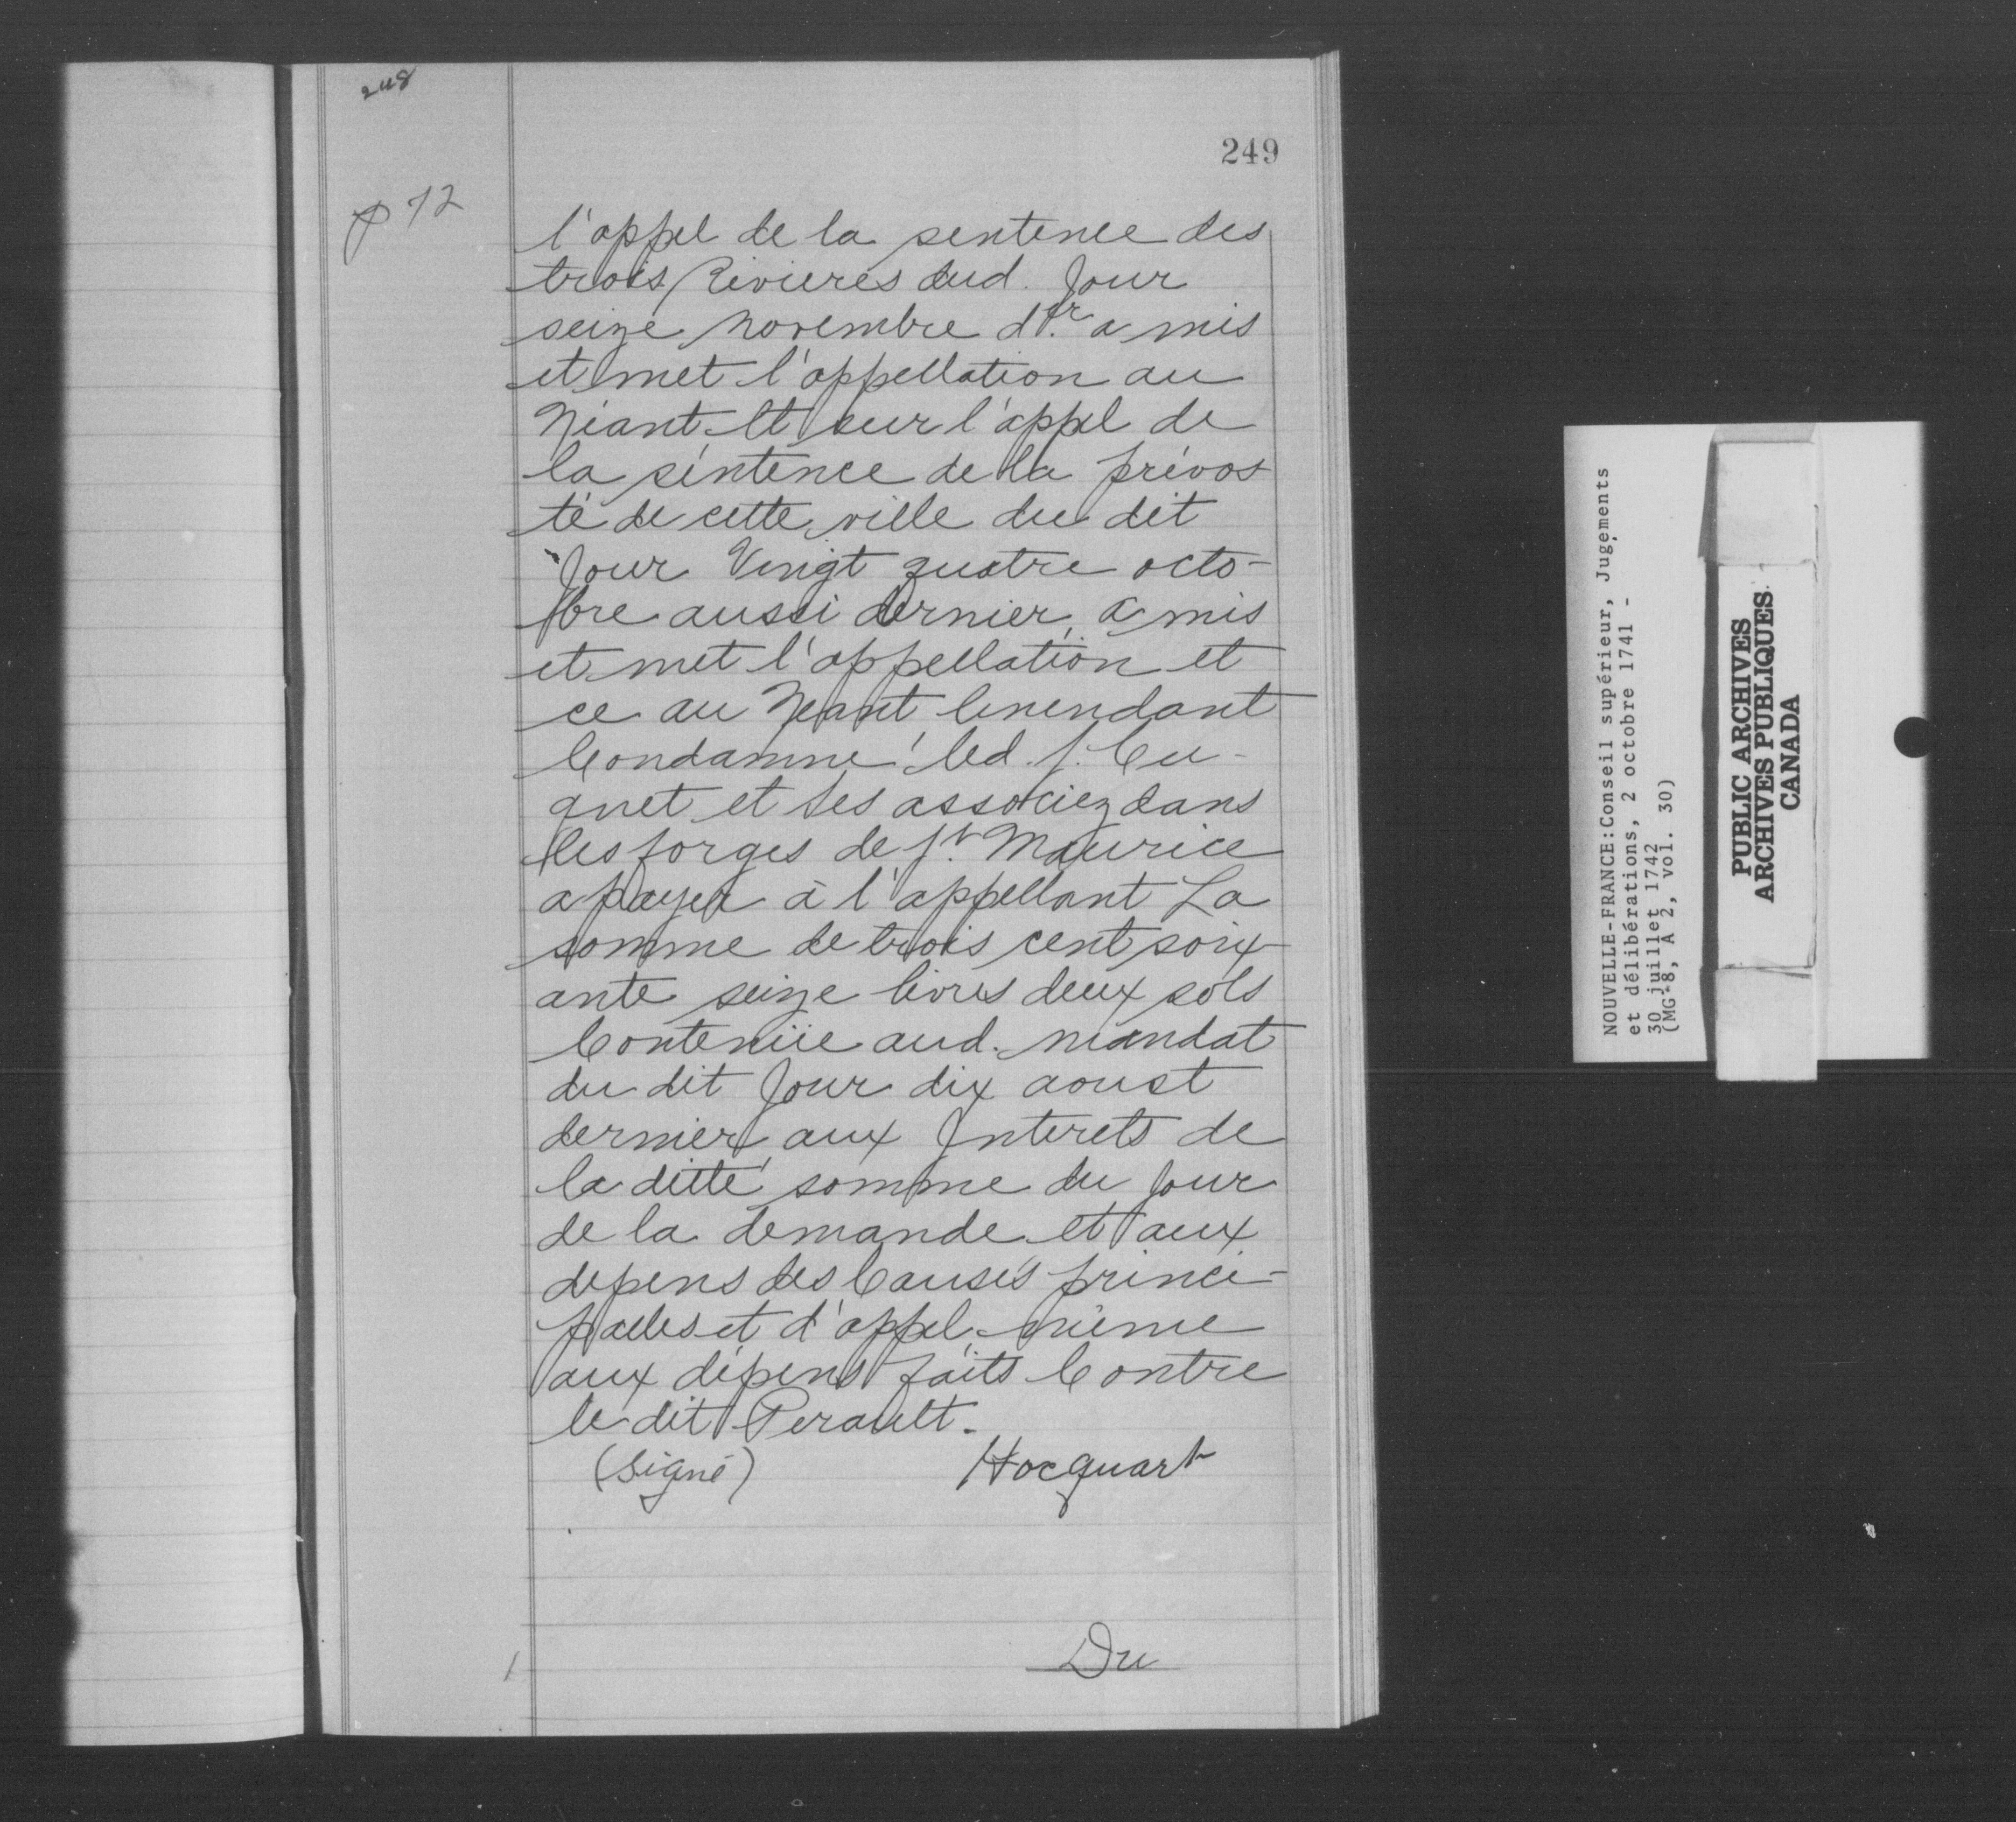 248
249
p 72
l'appel de la sentence des
trois Rivieres dud. Jour
seize novembre d.er a mis
et met l'appellation au
Néant Et sur l'appel de
la séntence de la prévos
té de cette ville du dit
Jour Vingt quatre octo-
bre aussi dernier, a mis
et met l'appellation et
ce au Neant Emendant
Condamne led. s. Cu-
gnet et ses associez dans
les forges de St. Maurice
a payer à l'appellant La
somme de trois cent soix-
ante seize livres deux sols
Contenüe aud. mandat
du dit Jour dix aoust
dernier aux Interets de
la ditte somme du Jour
de la demande et aux
depens des Causes princi-
palles et d'appel même
aux dépens faits Contre
le dit Perault.
(Signé) Hocquart
Du
NOUVELLE-FRANCE:Conseil supérieur, Jugements
et délibérations, 2 octobre 1741 -
30 juillet 1742
(MG-8, A 2, vol. 30)
PUBLIC ARCHIVES
ARCHIVES PUBLIQUES
CANADA